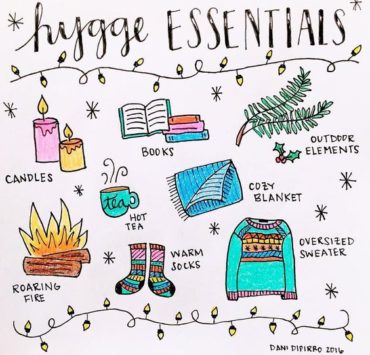 hygge ESSENTIALS
CANDLES
BOOKS
OUTDOOR
ELEMENTS
tea
HOT
TEA
COZY
BLANKET
ROARING
FIRE
WARM
SOCKS
OVERSIZED
SWEATER
DANI DIPIRRO 2016